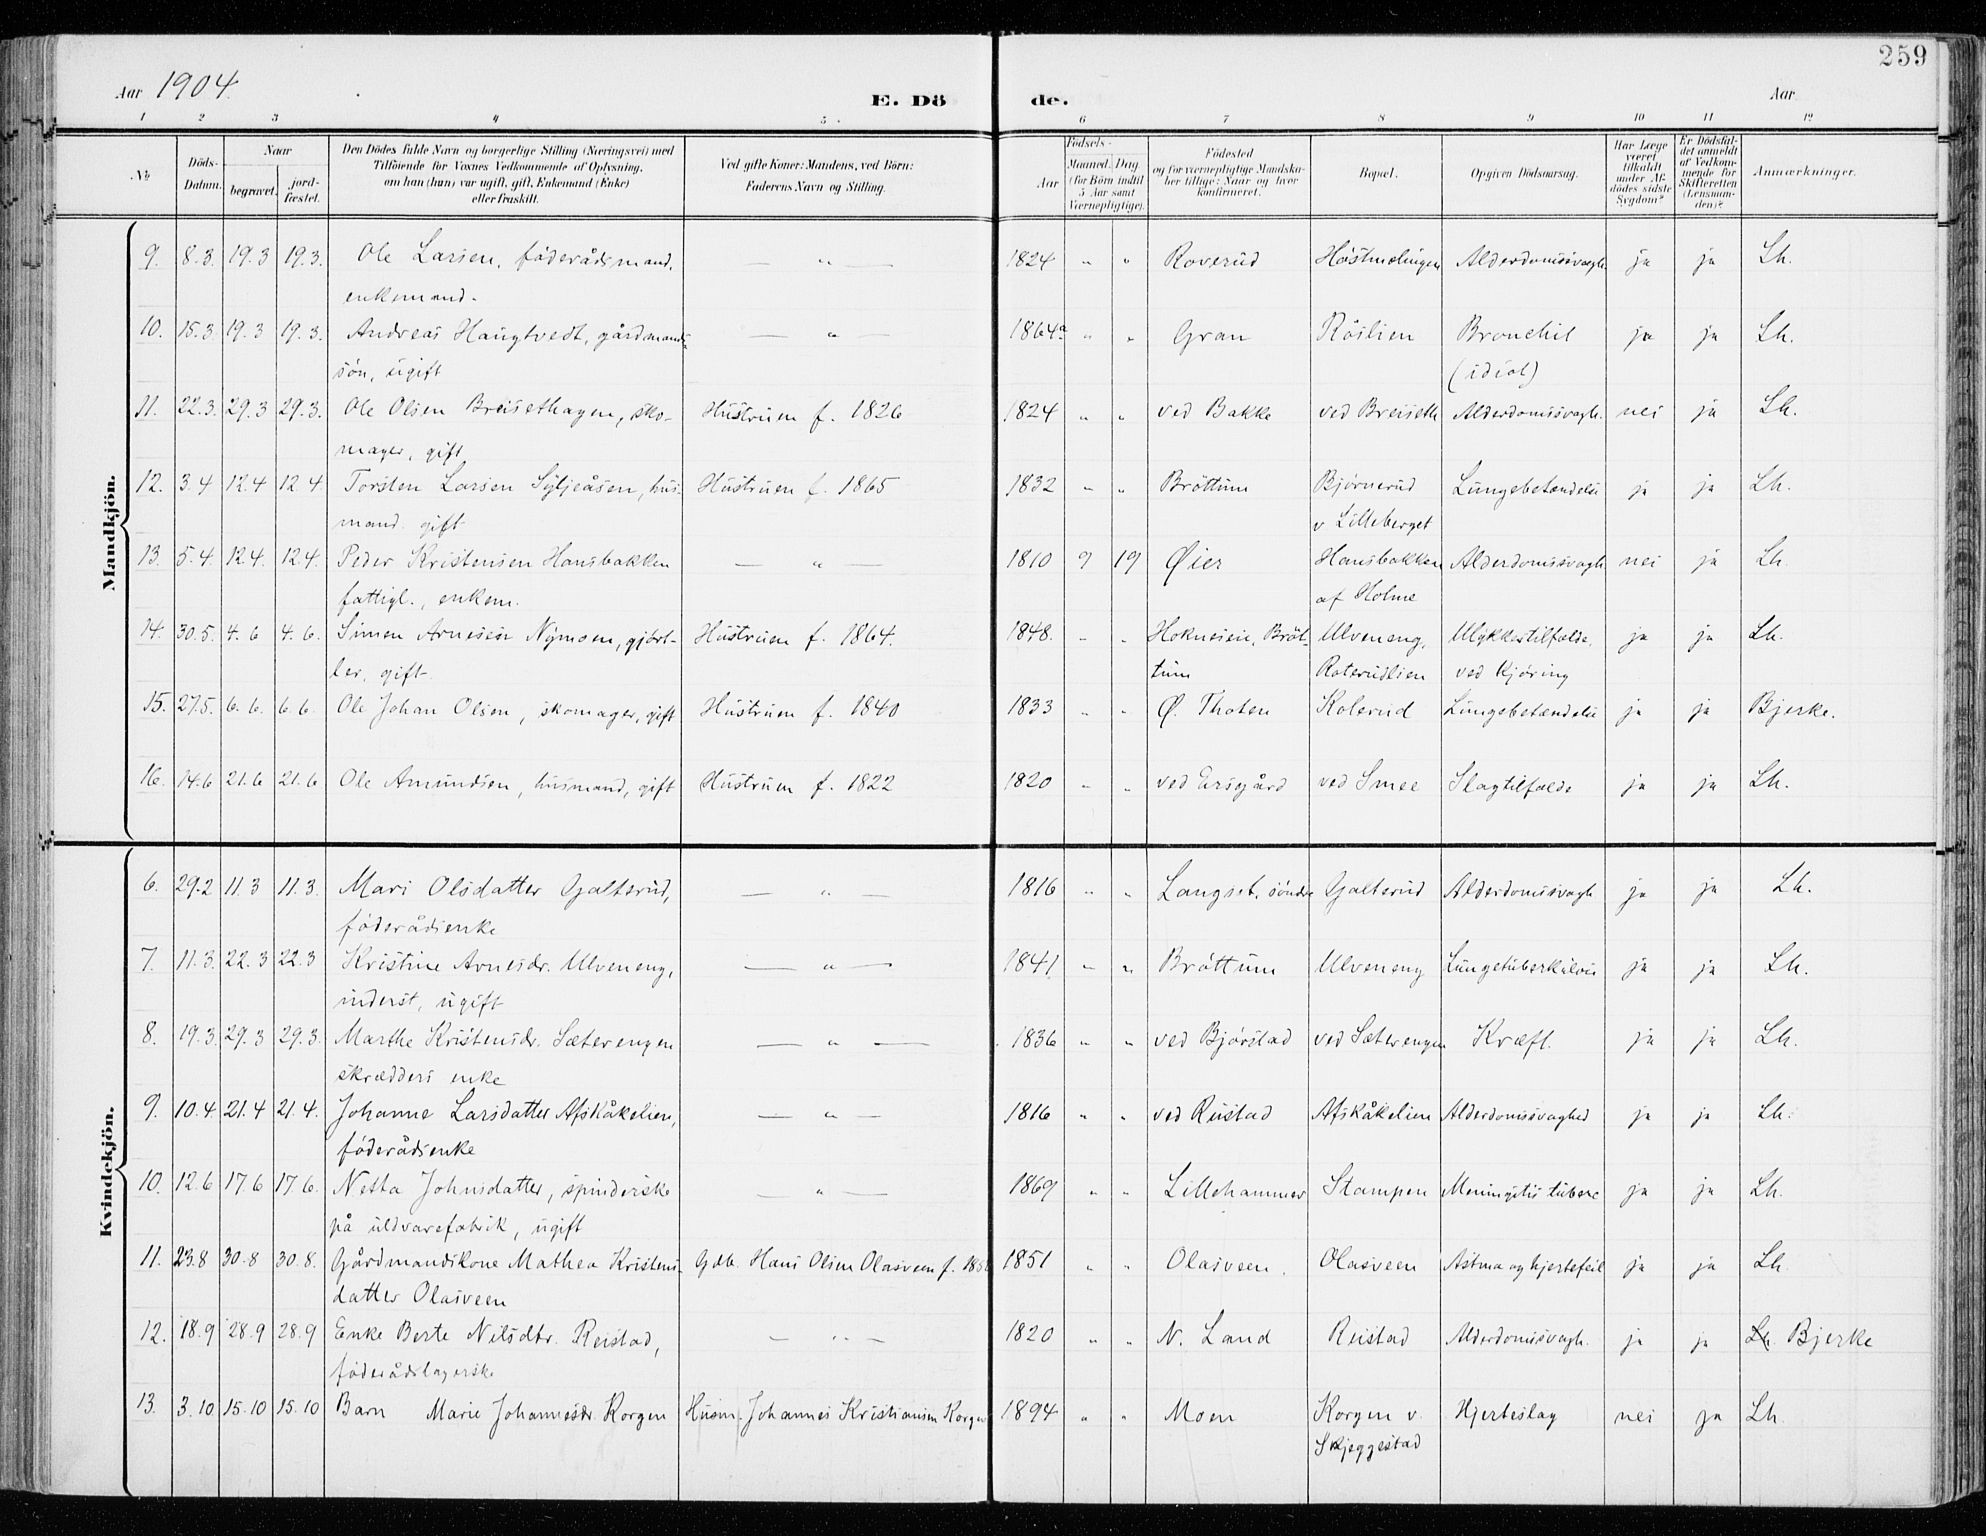 259
Aar 1904.
E. Dö de.
Aar
1 2 3 4 5 6 7 8 9 10 11 12
No.
Döds-Datum.
Naar
begravet.
jord-fæstet.
Den Dödes fulde Navn og borgerlige Stilling (Næringsvei) med
Tilföiende for Voxnes Vedkommende af Oplysning,
om han (hun) var ugift, gift, Enkemand (Enke)
eller fraskilt.
Ved gifte Koner: Mandens, ved Börn:
Faderens Navn og Stilling.
Födsels-
Aar
Maaned. Dag
(for Börn indtil
5 Aar samt
Værnepligtige).
Födested
og for værnepligtige Mandska-
ber tillige: Naar og hvor
konfirmeret.
Bopæl.
Opgiven Dödsaarsag.
Har Læge
været
tilkaldt
under Af-
dödes sidste
Sygdom?
Er Dödsfal-
det anmeldt
af Vedkom-
mende for
Skifteretten
(Lensman-
den)?
Anmærkninger.
Mandkjön.
9. 8.3. 19.3 19.3. Ole Larsen, föderådsmand, — " — 1824 " " Roverud Höstmælingen Alderdomssvagh. ja ja Lh.
enkemand.
10. 15.3. 19.3 19.3. Andreas Haugtvedt, gårdmands- — " — 1864 " " Gran Röslien Bronchit ja ja Lh.
sön, ugift (idiot)
11. 22.3. 29.3 29.3. Ole Olsen Breisethagen, sko- Hustruen f. 1826 1824 " " ved Bakke ved Breiseth Alderdomssvagh. nei ja Lh.
mager, gift
12. 3.4 12.4 12.4 Torsten Larsen Syljeåsen, hus- Hustruen f. 1865 1832 " " Bröttum Bjørnerud Lungebetændelse ja ja Lh.
mand. gift v Lilleberget
13. 5.4 12.4. 12.4. Peder Kristensen Hansbakken — " — 1810 9 19 Øier Hansbakken Alderdomssvagh. nei ja Lh.
fattigl., enkem. af Holme
14. 30.5. 4.6 4.6. Simen Arnesen Nymoen, gjört- Hustruen f. 1864. 1848. " " Hokneseie, Bröt- Ulveneng, Ulykkestilfælde, ja ja Lh.
ler, gift. tum Roterudlien ved kjøring
15. 27.5. 6.6. 6.6. Ole Johan Olsen, skomager, gift Hustruen f. 1840 1833 " " Ø. Thoten Kolerud Lungebetændelse ja ja Bjerke.
16. 14.6 21.6 21.6 Ole Amundsen, husmand, gift Hustruen f. 1822 1820 " " ved Ersgård ved Smee Slagtilfælde ja ja Lh.
Kvindekjön.
6. 29.2 11.3 11.3. Mari Olsdatter Galterud, — " — 1816 " " Langset, söndre Galterud Alderdomssvagh ja ja Lh.
föderådsenke
7. 11.3. 22.3 22.3 Kristine Arnesdr. Ulveneng, — " — 1841 " " Bröttum Ulveneng Lungetuberkulose ja ja Lh.
inderst, ugift
8. 19.3. 29.3 29.3. Marthe Kristensdr. Sæterengen — " — 1836 " " ved Bjørstad ved Sæterengen Kræft. ja ja Lh.
skrædders enke
9. 10.4. 21.4 21.4. Johanne Larsdatter Afskåkelien, — " — 1816 " " ved Rustad Afskåkelien Alderdomssvaghed ja ja Lh.
föderådsenke
10. 12.6 17.6 17.6. Netta Johnsdatter, spinderske — " — 1869 " " Lillehammer Stampen Meningitis tuberc ja ja Lh.
på uldvarefabrik, ugift
11. 23.8 30.8 30.8. Gårdmandskone Mathea Kristens- Gdb. Hans Olsen Olasveen f. 1851 " " Olasveen. Olasveen Astma og hjertefeil ja ja Lh.
datter Olasveen
12. 18.9 28.9 28.9 Enke Berte Nilsdtr. Reistad, — " — 1820 " " N. Land Reistad Alderdomssvagh. ja ja Lh. Bjerke
föderådstagerske
13. 3.10 15.10 15.10 Barn Marie Johannesdr. Korgen Husm. Johannes Kristiansen Korgen 1894 " " Moen Korgen v. Hjerteslag nei ja Lh.
Skjeggestad